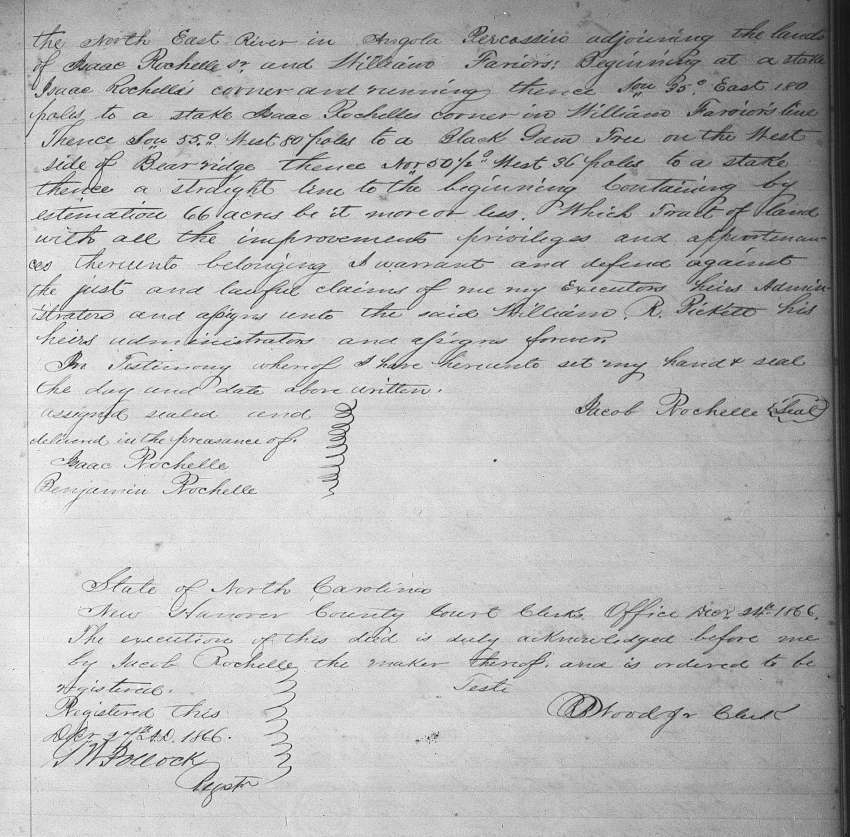 the North East River in Angola Percossin adjoining the lands
of Isaac Rochelle sr and William Fariors: Beginning at a stake
Isaac Rochelles corner and running thence Sou 35° East 180
poles, to a stake Isaac Rochelles corner in William Farior's line
Thence Sou 55° West 80 poles to a Black Gum Tree on the West
side of Bear ridge thence Nor 50½° West 36 poles to a stake
thence a straight line to the beginning Containing by
estimation 66 acres be it more or less. Which Tract of Land
with all the improvements priviliges and appurtenan-
ces thereunto belonging I warrant and defend against
the just and lawful claims of me my Executors heirs Admin-
istrators and assigns unto the said William R. Pickett his
heirs administrators and assigns forever.
In Testimony whereof I have hereunto set my hand & seal
the day and date above written.
assigned sealed and
Jacob Rochelle (Seal)
delivered in the preasance of.
Isaac Rochelle
Benjamin Rochelle
State of North Carolina
New Hanover County Court Clerks Office Decr 24th 1866.
The execution of this deed is duly acknowledged before me
by Jacob Rochelle, the maker thereof. and is ordered to be
registered.
Teste
Registered this
Wood Jr Clerk
Decr 27th A.D. 1866.
Pollock
Regstr